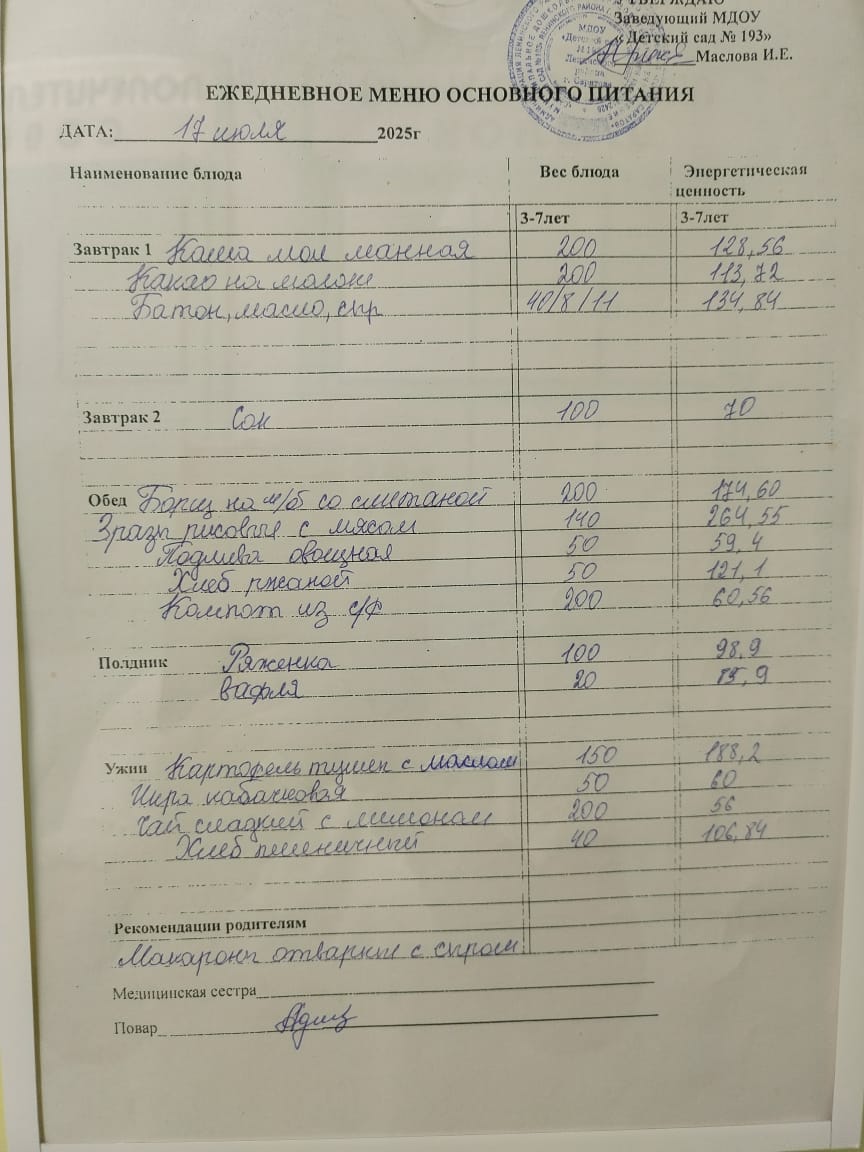 УТВЕРЖДАЮ
Заведующий МДОУ
« Детский сад № 193»
Маслова И.Е.
ЕЖЕДНЕВНОЕ МЕНЮ ОСНОВНОГО ПИТАНИЯ
ДАТА: 17 июля 2025г
Наименование блюда Вес блюда Энергетическая ценность
3-7лет 3-7лет
Завтрак 1 Каша мол манная 200 128,56
Какао на молоке 200 113,72
Батон, масло, сыр 40/8/11 134,84
Завтрак 2 Сок 100 70
Обед Борщ на м/б со сметаной 200 174,60
Зразы рисовые с мясом 140 264,55
Подлива овощная 50 59,4
Хлеб ржаной 50 121,1
Компот из с/ф 200 60,56
Полдник Ряженка 100 98,9
вафля 20 85,9
Ужин Картофель тушен с маслом 150 188,2
Икра кабачковая 50 60
Чай сладкий с лимоном 200 56
Хлеб пшеничный 40 106,84
Рекомендации родителям
Макароны отварные с сыром
Медицинская сестра
Повар